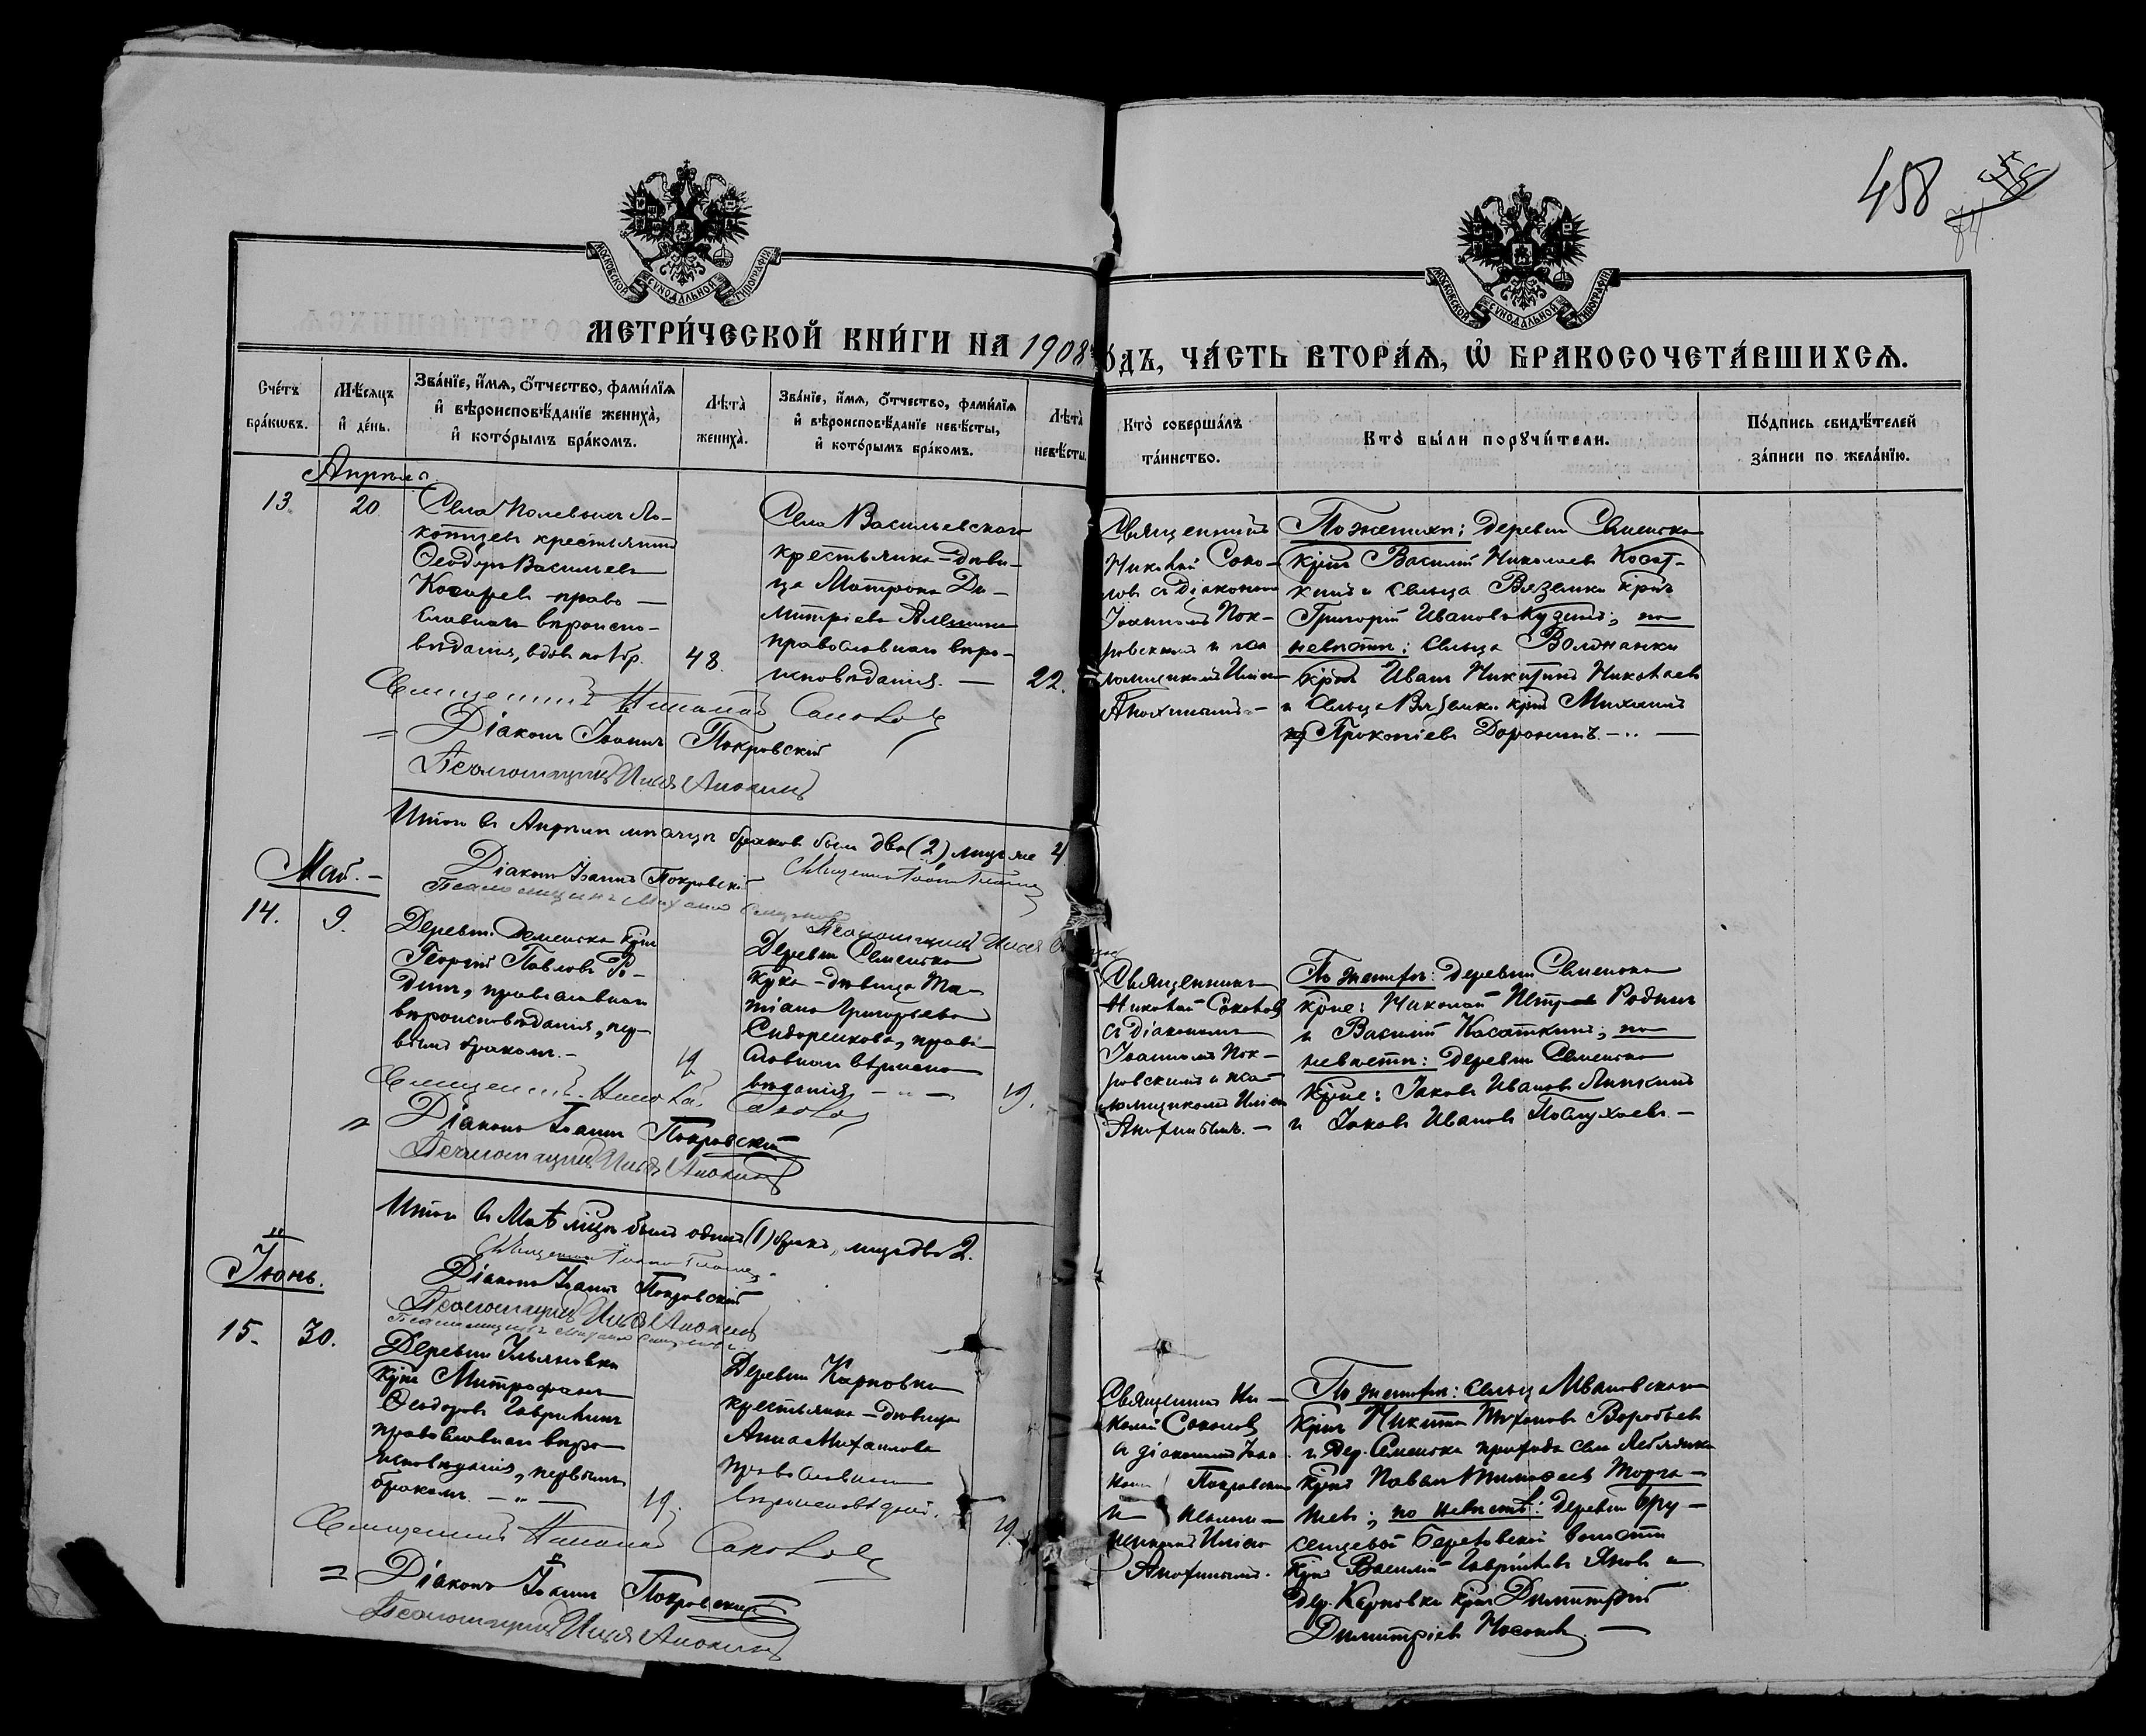 458
МОСКОВСКОЙ СѴНОДАЛЬНОЙ ТИПОГРАФІИ
МОСКОВСКОЙ СѴНОДАЛЬНОЙ ТИПОГРАФІИ
МЕТРИ́ЧЕСКОЙ КНИ́ГИ НА 1908
О́ДЪ, ЧА́СТЬ ВТОРА́Ѧ, Ѡ҆ БРАКОСОЧЕТА́ВШИХСѦ.
Сче́тъ бра́кѡвъ.
Мѣ́сѧцъ и҆ де́нь.
Зва́нїе, и҆́мѧ, ѻ҆́тчество, фами́лїѧ
и҆ вѣроисповѣ́данїе жениха̀,
и҆ кото́рымъ бра́комъ.
Лѣ́та̀ жениха̀.
Зва́нїе, и҆́мѧ, ѻ҆́тчество, фами́лїѧ
и҆ вѣроисповѣ́данїе невѣ́сты,
и҆ кото́рымъ бра́комъ.
Лѣ́та̀ невѣ́сты.
Кто̀ соверша́лъ
та́инство.
Кто̀ бы́ли порꙋчи́тели.
По́дпись свидѣ́телей
за́писи по жела́нїю.
Апрѣль
13
20
Села Полевыхъ Ло-
котцевъ крестьянинъ
Ѳеодоръ Васильевъ
Косаревъ право-
славнаго вѣроиспо-
вѣданія, вдовъ
48.
Села Васильевскаго
крестьянка-дѣви-
ца Матрона Ди-
митріева
православнаго вѣро-
исповѣданія. —
22.
Священникъ
Николай Соко-
ловъ съ діакономъ
Іоанномъ Пок-
ровскимъ и пса
ломщикомъ Иліею
Анохинымъ. —
По женихѣ: деревни Семенска
крнъ Василій Николаевъ Косат-
кинъ и сельца Вяземки крнъ
Григорій Ивановъ Кузинъ; по
невѣстѣ: сельца Волжанки
крнъ Иванъ Никитинъ Николаевъ
и сельца Вяземки крнъ Михаилъ
Прокопіевъ Доронинъ. —
Священникъ Николай Соколовъ
Діаконъ Іоаннъ Покровскій
Псаломщикъ Илья Анохинъ
Итого въ Апрѣлѣ мѣсяцѣ браковъ было два (2) лицъ же 4.
Священникъ Іоаннъ
Діаконъ Іоаннъ Покровскій
Псаломщикъ Михаилъ
Псаломщикъ Илья
Май. —
14.
9.
Деревни Семенска крнъ
Георгій Павловъ Ро-
динъ, православнаго
вѣроисповѣданія, пер-
вымъ бракомъ. —
19
Деревни Семенска
крка-дѣвица Та-
тіана Григорьева
Сидоренкова, право-
славнаго вѣроиспо-
вѣданія —
19.
Священникъ
Николай Соколовъ
съ діакономъ
Іоанномъ Пок-
ровскимъ и пса-
ломщикомъ Иліею
Анохинымъ. —
По женихѣ: деревни Семенска
крне: Николай Петровъ Родинъ
и Василій Касаткинъ; по
невѣстѣ: деревни Семенска
крне: Іаковъ Ивановъ Липкинъ
и Іаковъ Ивановъ Послухаевъ. —
Священникъ Николай Соколовъ
Діаконъ Іоаннъ Покровскій
Псаломщикъ Илья Анохинъ
Итого въ Маѣ мѣсяцѣ былъ одинъ (1) бракъ, лицъ два 2.
Священникъ Іоаннъ
Діаконъ Іоаннъ Покровскій
Псаломщикъ Илья Анохинъ
Псаломщикъ Михаилъ
Іюнь.
15.
30.
Деревни Ульяновки
крнъ Митрофанъ
Ѳеодоровъ Гаврикинъ
православнаго вѣро-
исповѣданія, первымъ
бракомъ. —
19.
Деревни Карповки
крестьянка-дѣвица
Анна Михаилова
православнаго
вѣроисповѣданія.
19.
Священникъ Ни-
колай Соколовъ
съ діакономъ Іоан-
номъ Покровскимъ
и псалом-
щикомъ Иліею
Анохинымъ.
По женихѣ: сельца Ивановскаго
крнъ Никита Тихоновъ Воробьевъ
и дер. Семенска прихода села Лебяжка
крнъ Павелъ Тимоѳеевъ
по невѣстѣ: деревни Бру-
сенцевой Береговской волости
крнъ Василій Гавриловъ Яковъ и
дер. Карповки крнъ Димитрій
Димитріевъ Носовъ. —
Священникъ Николай Соколовъ
Діаконъ Іоаннъ Покровскій
Псаломщикъ Илья Анохинъ